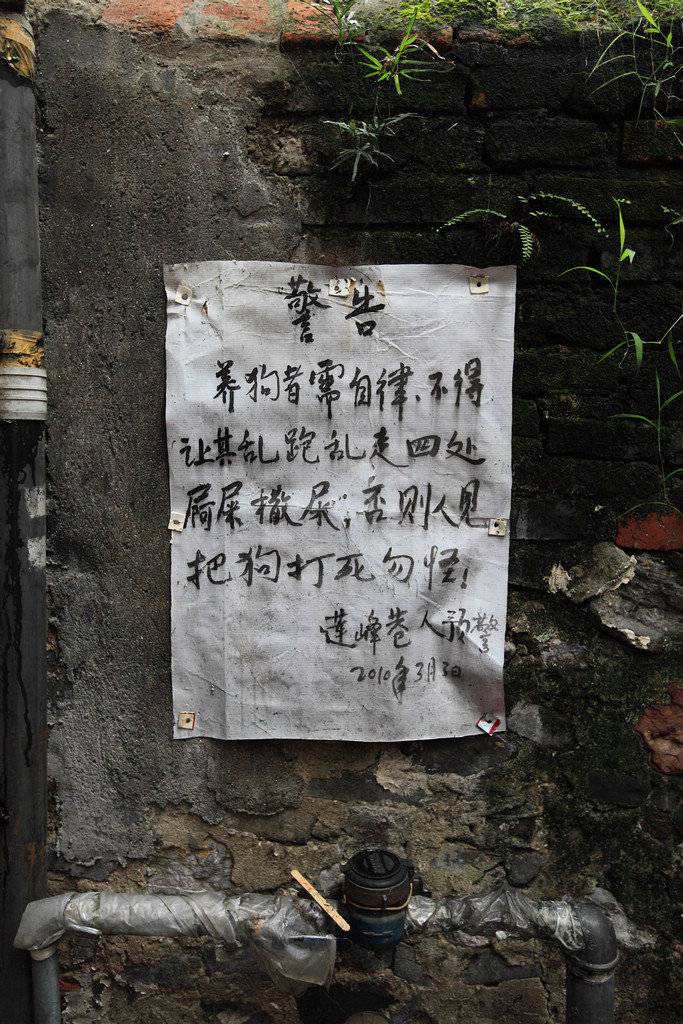 警告
养狗者需自律、不得
让其乱跑乱走四处
屙屎撒尿;否则人见
把狗打死勿怪!
莲峰巷人预警
2010年3月3日